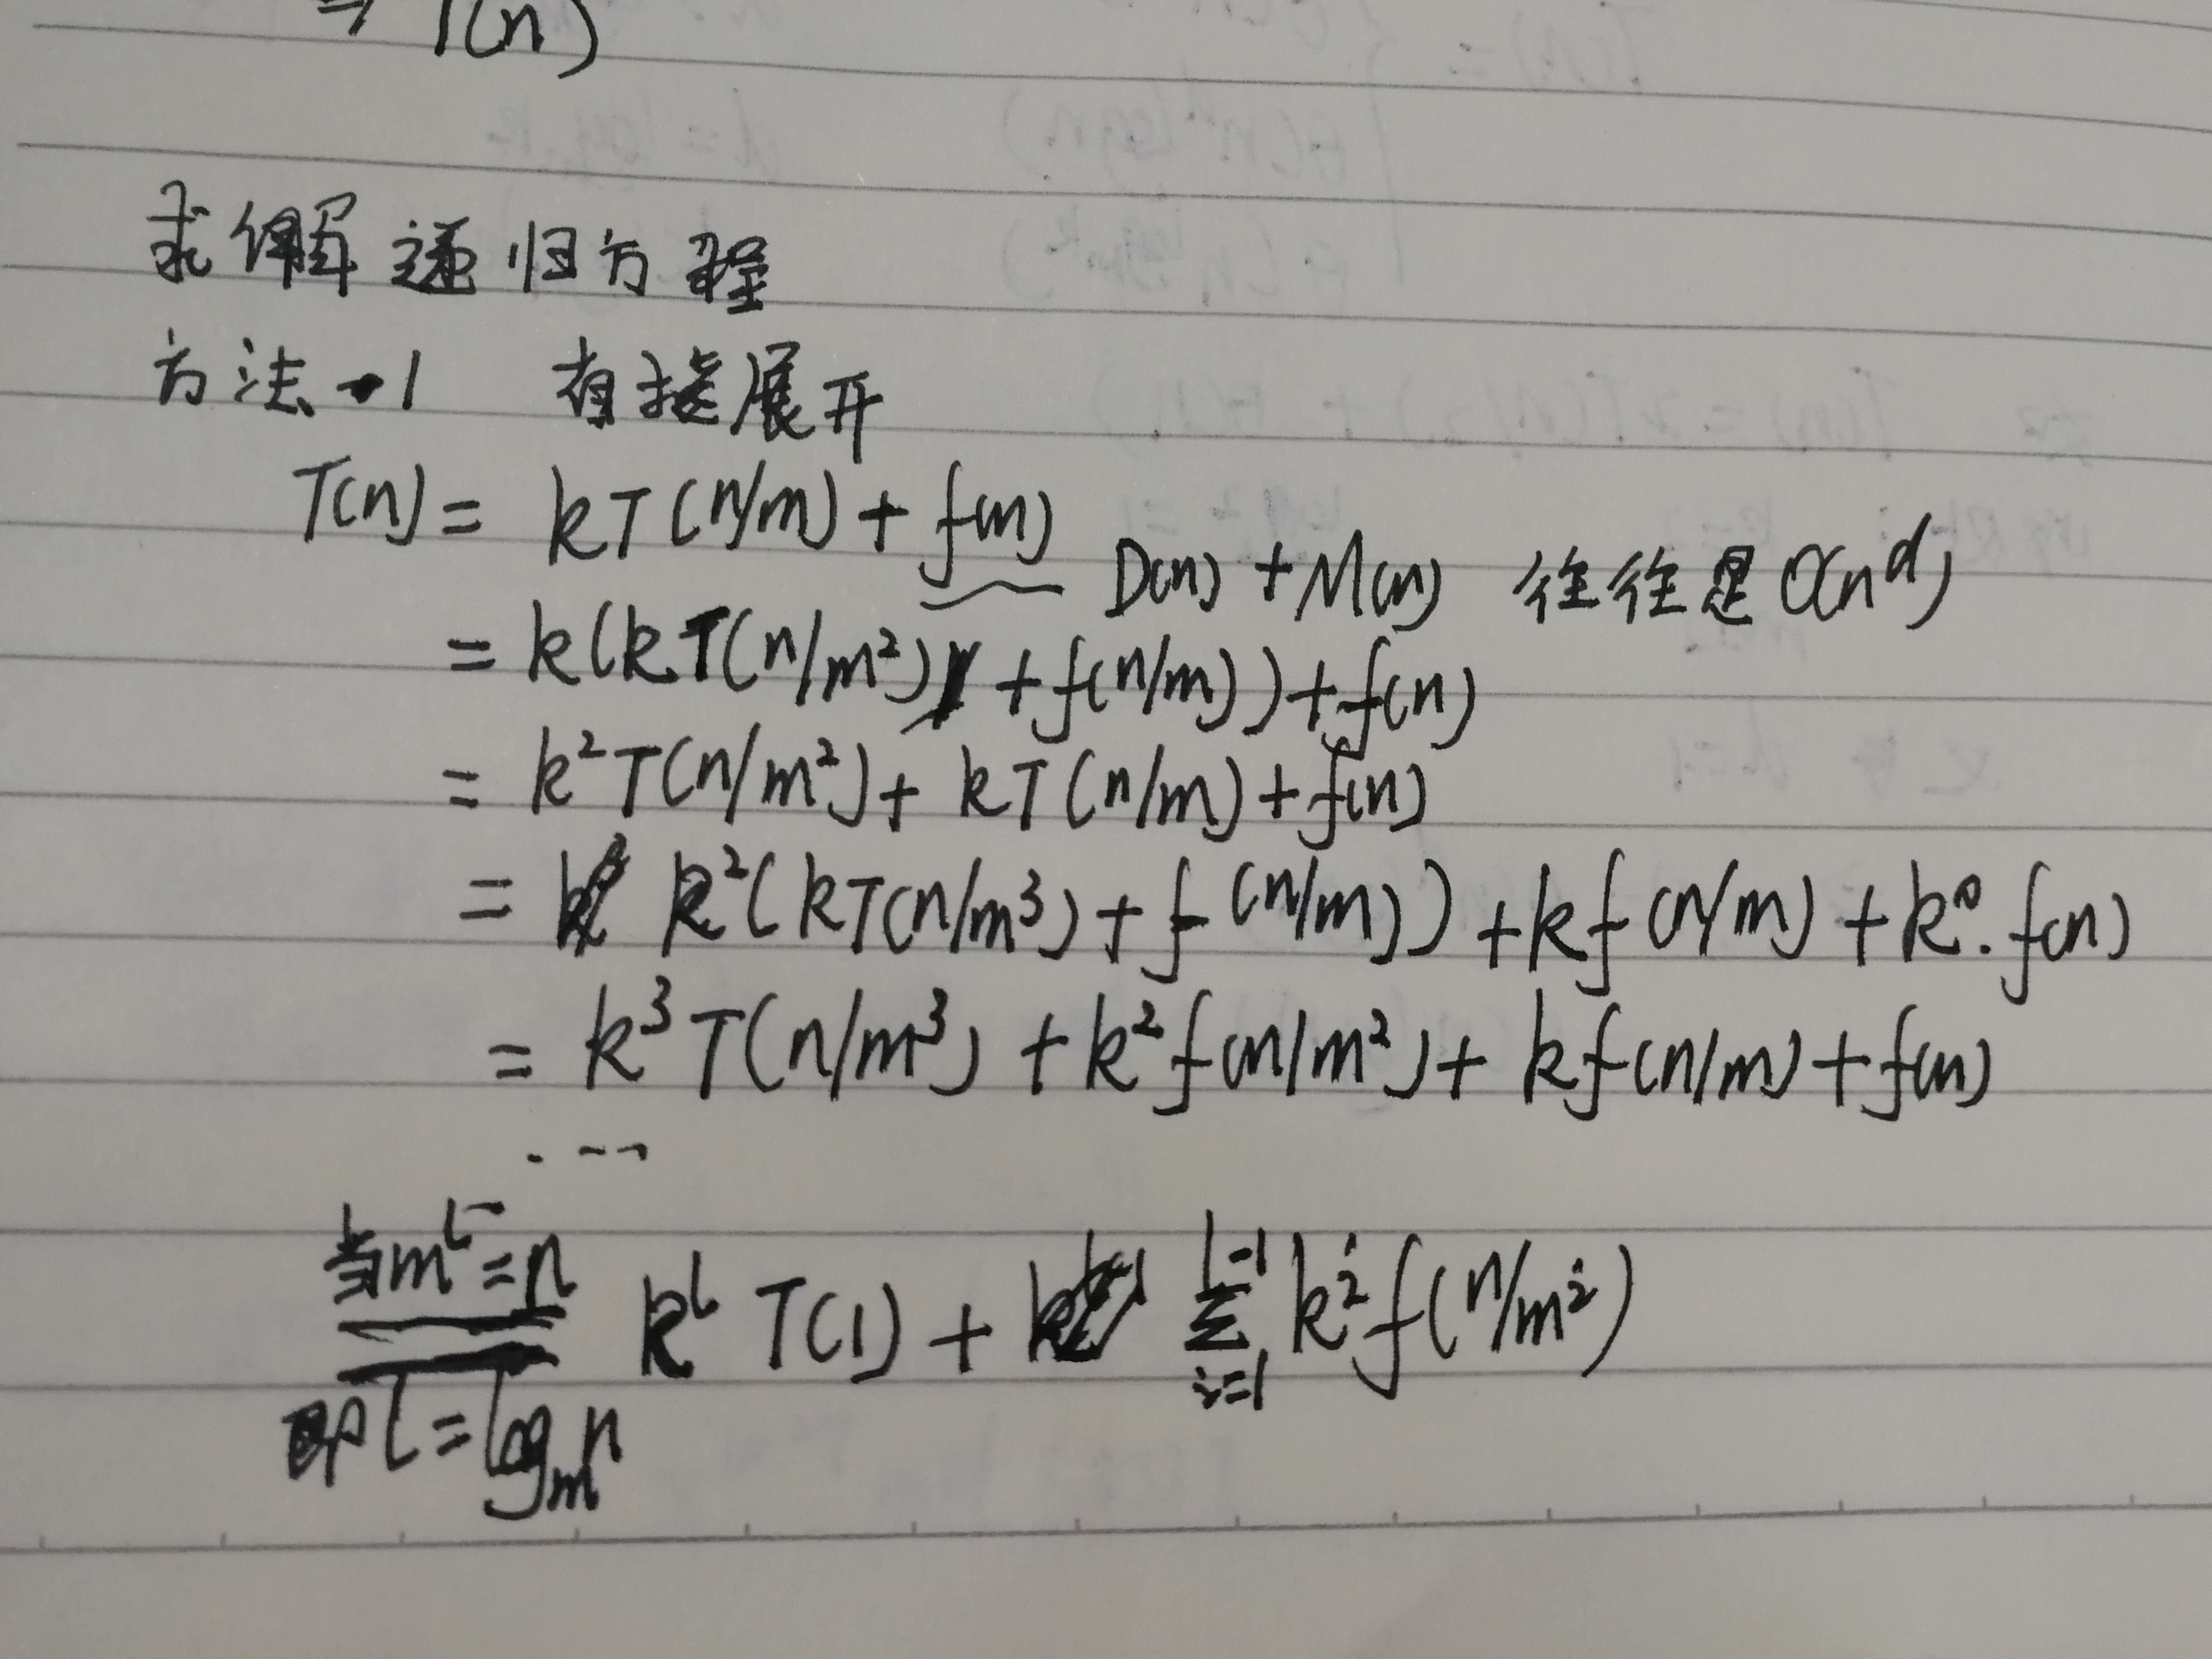 ⇒ T(n)
求解递归方程
方法1 直接展开
T(n) = kT(n/m) + f(n)
D(n) + M(n) 往往是O(n^d)
= k(kT(n/m²) + f(n/m)) + f(n)
= k²T(n/m²) + kT(n/m) + f(n)
= k²(kT(n/m³) + f(n/m)) + kf(n/m) + k⁰·f(n)
= k³T(n/m³) + k²f(n/m²) + kf(n/m) + f(n)
....
当m^l = n
k^l T(1) + Σ_{i=1}^{l-1} k^i f(n/m^i)
即l = log_m n